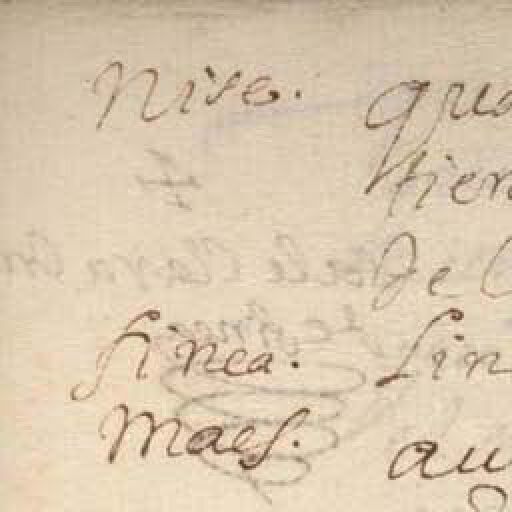 Nise. qua
tien
de
finea. sin
Maes. au